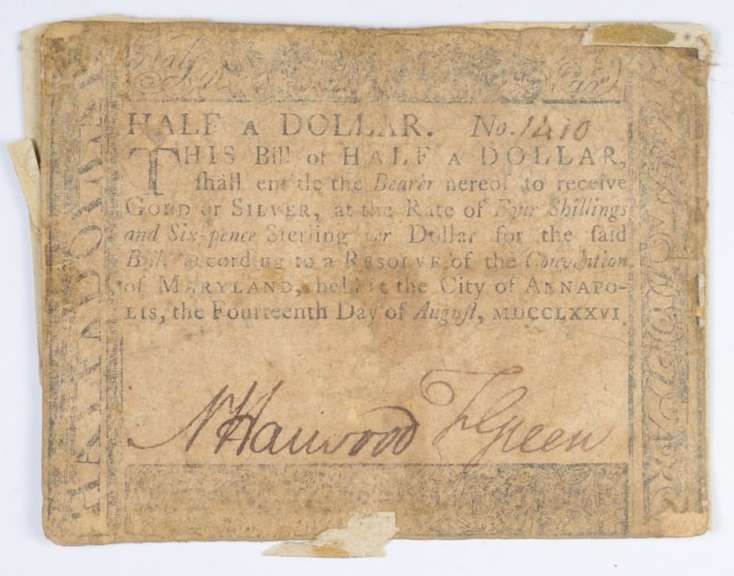 HALF A DOLLAR. No. 1410
THIS Bill of HALF A DOLLAR,
ſhall entitle the Bearer hereof to receive
GOLD or SILVER, at the Rate of Four Shillings
and Six-pence Sterling per Dollar for the ſaid
Bill, according to a RESOLVE of the Convention
of MARYLAND, held at the City of ANNAPO-
LIS, the Fourteenth Day of Auguſt, MDCCLXXVI.
N Harwood F Green
HALF A DOLLAR